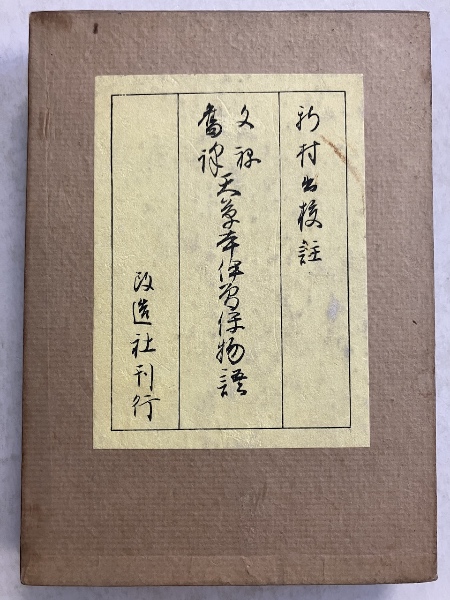 新村出校註
文禄舊譯
天草本伊曽保物語
改造社刊行